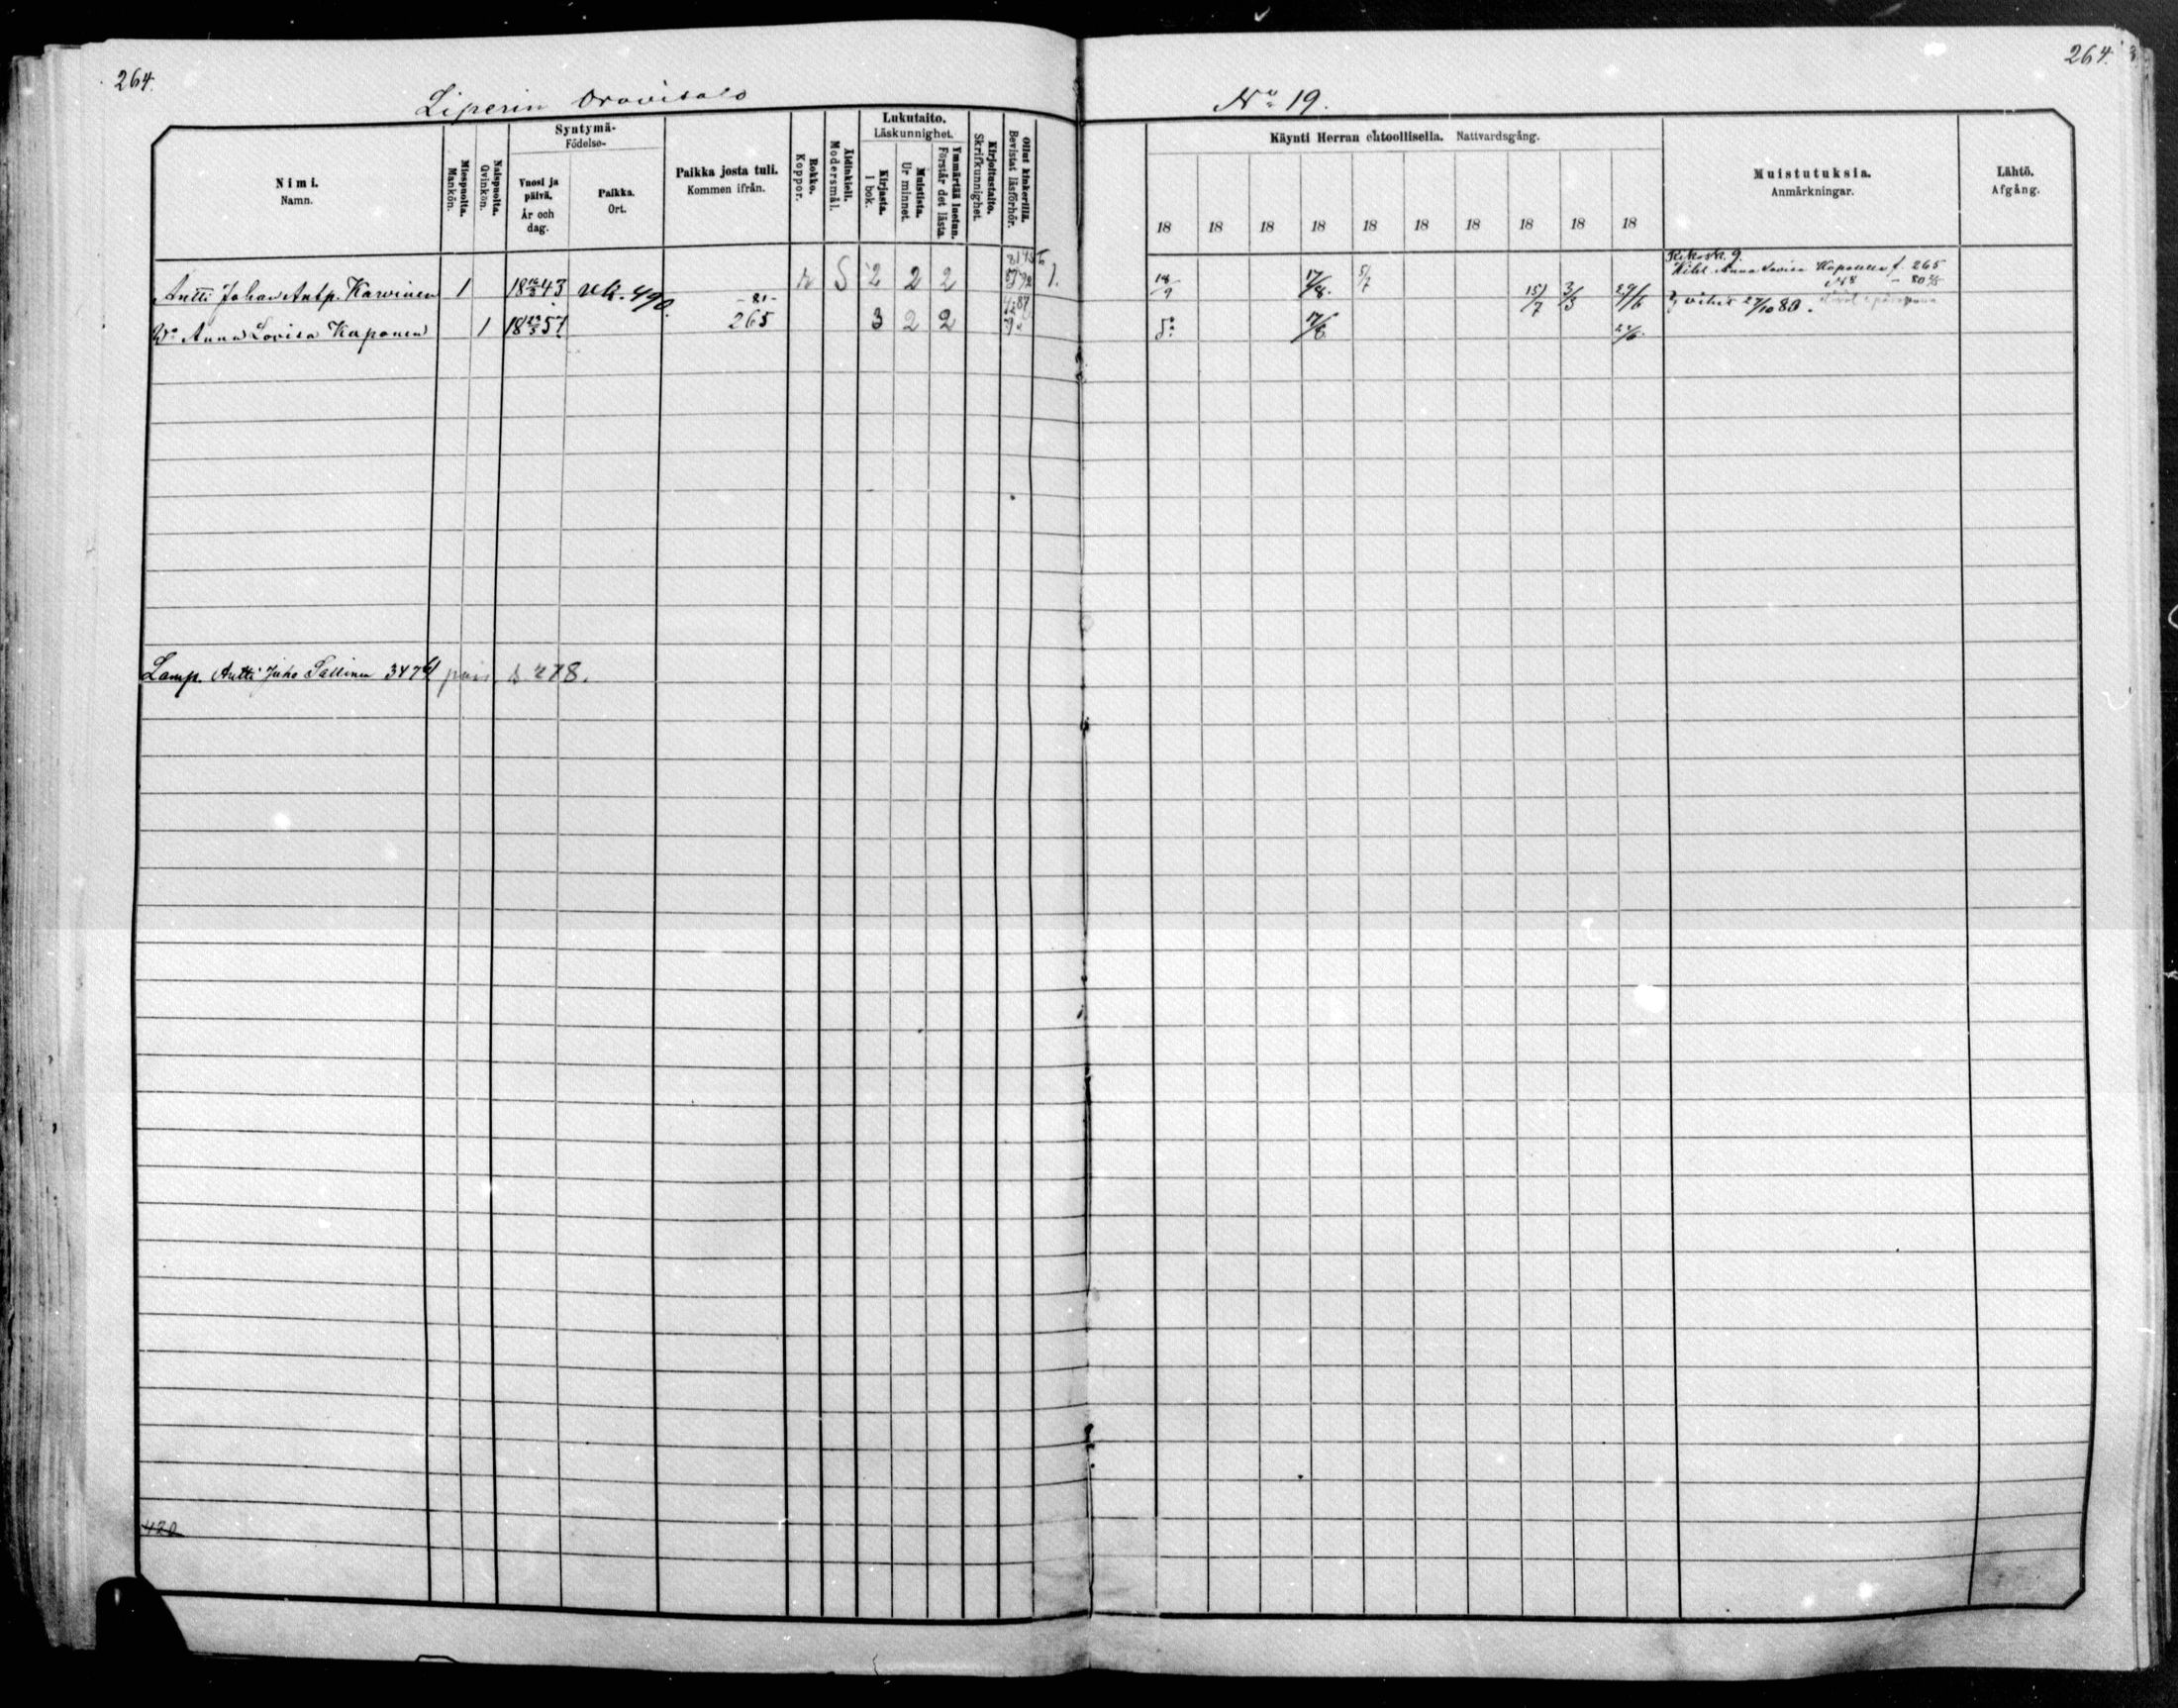 264.
Liperin Oravisalo
No 19.
264.
Nimi.
Namn.
Miespuolta.
Mankön.
Naispuolta.
Qvinkön.
Syntymä-
Födelse-
Vuosi ja
päivä.
År och
dag.
Paikka.
Ort.
Paikka josta tuli.
Kommen ifrån.
Rokko.
Koppor.
Äidinkieli.
Modersmål.
Lukutaito.
Läskunnighet.
Kirjasta.
I bok.
Muistista.
Ur minnet.
Ymmärtää luetun.
Förstår det lästa.
Kirjoitustaito.
Skrifkunnighet.
Ollut kinkerillä.
Bevistat läsförhör.
Käynti Herran ehtoollisella. Nattvardsgång.
18 18 18 18 18 18 18 18 18 18
Muistutuksia.
Anmärkningar.
Lähtö.
Afgång.
Antti Johan Antp. Karvinen 1 43 490 -81- S 2 2 2 1. 17/8. 5/7 15/7 3/3
Anna Lovisa Kaponen f. 265
vihit 27/10 80.
Wo Anna Lovisa Kaponen 1 57 265 3 2 2 17/8
Lamp. Antti Juho Tallinen 347 s 278.
420